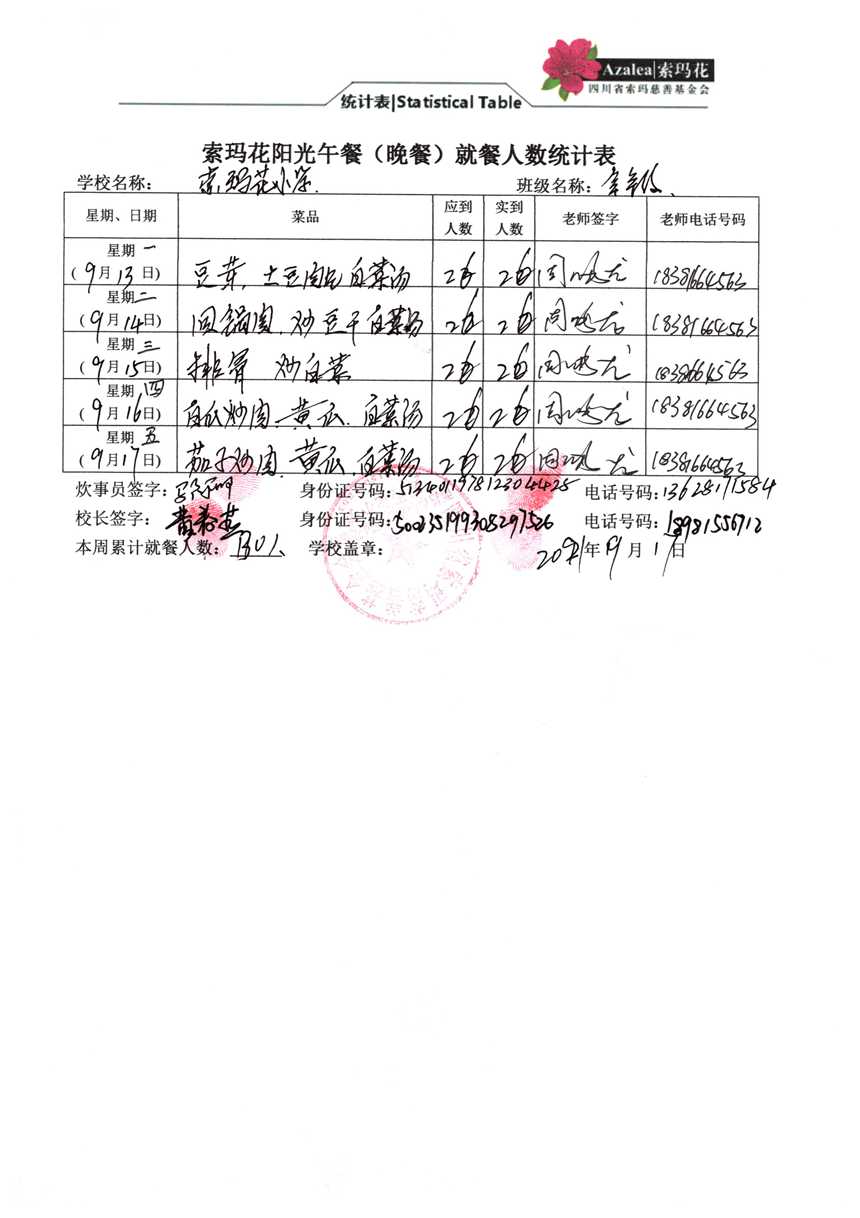 Azalea|索玛花
四川省索玛慈善基金会
统计表|Statistical Table
索玛花阳光午餐（晚餐）就餐人数统计表
学校名称： 索玛花小学. 班级名称：
星期、日期 菜品 应到人数 实到人数 老师签字 老师电话号码
星期 一
(9月13日) 豆芽. 土豆肉 白菜汤 26 26 周 18381664563
星期二
(9月14日) 回锅肉. 炒豆干 白菜汤 26 26 周 18381664563
星期 三
(9月15日) 排骨 炒白菜 26 26 周 18381664563
星期 四
(9月16日) 瓜炒肉 黄瓜. 白菜汤 26 26 周 18381664563
星期 五
(9月17日) 茄子炒肉 黄瓜.白菜汤 26 26 周 18381664563
炊事员签字： 身份证号码：513401197812304428 电话号码：13628171584
校长签字： 身份证号码：500235199308297526 电话号码：18981556712
本周累计就餐人数：130人 学校盖章：
2021年9月17日